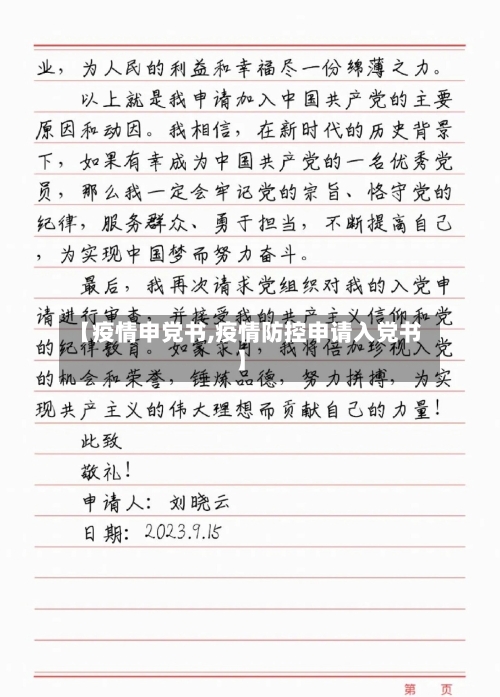 业，为人民的利益和幸福尽一份绵薄之力。
以上就是我申请加入中国共产党的主要
原因和动因。我相信，在新时代的历史背景
下，如果有幸成为中国共产党的一名优秀党
员，那么我一定会牢记党的宗旨、恪守党的
纪律，服务群众、勇于担当，不断提高自己
，为实现中国梦而努力奋斗。
最后，我再次请求党组织对我的入党申
请进行审查，并接受我的共产主义信仰和党
【疫情申党书,疫情防控申请入党书
】
的纪律教育。如蒙录用，我将倍加珍视入党
的机会和荣誉，锤炼品德，努力拼搏，为实
现共产主义的伟大理想而贡献自己的力量！
此致
敬礼！
申请人：刘晓云
日期：2023.9.15
第 页